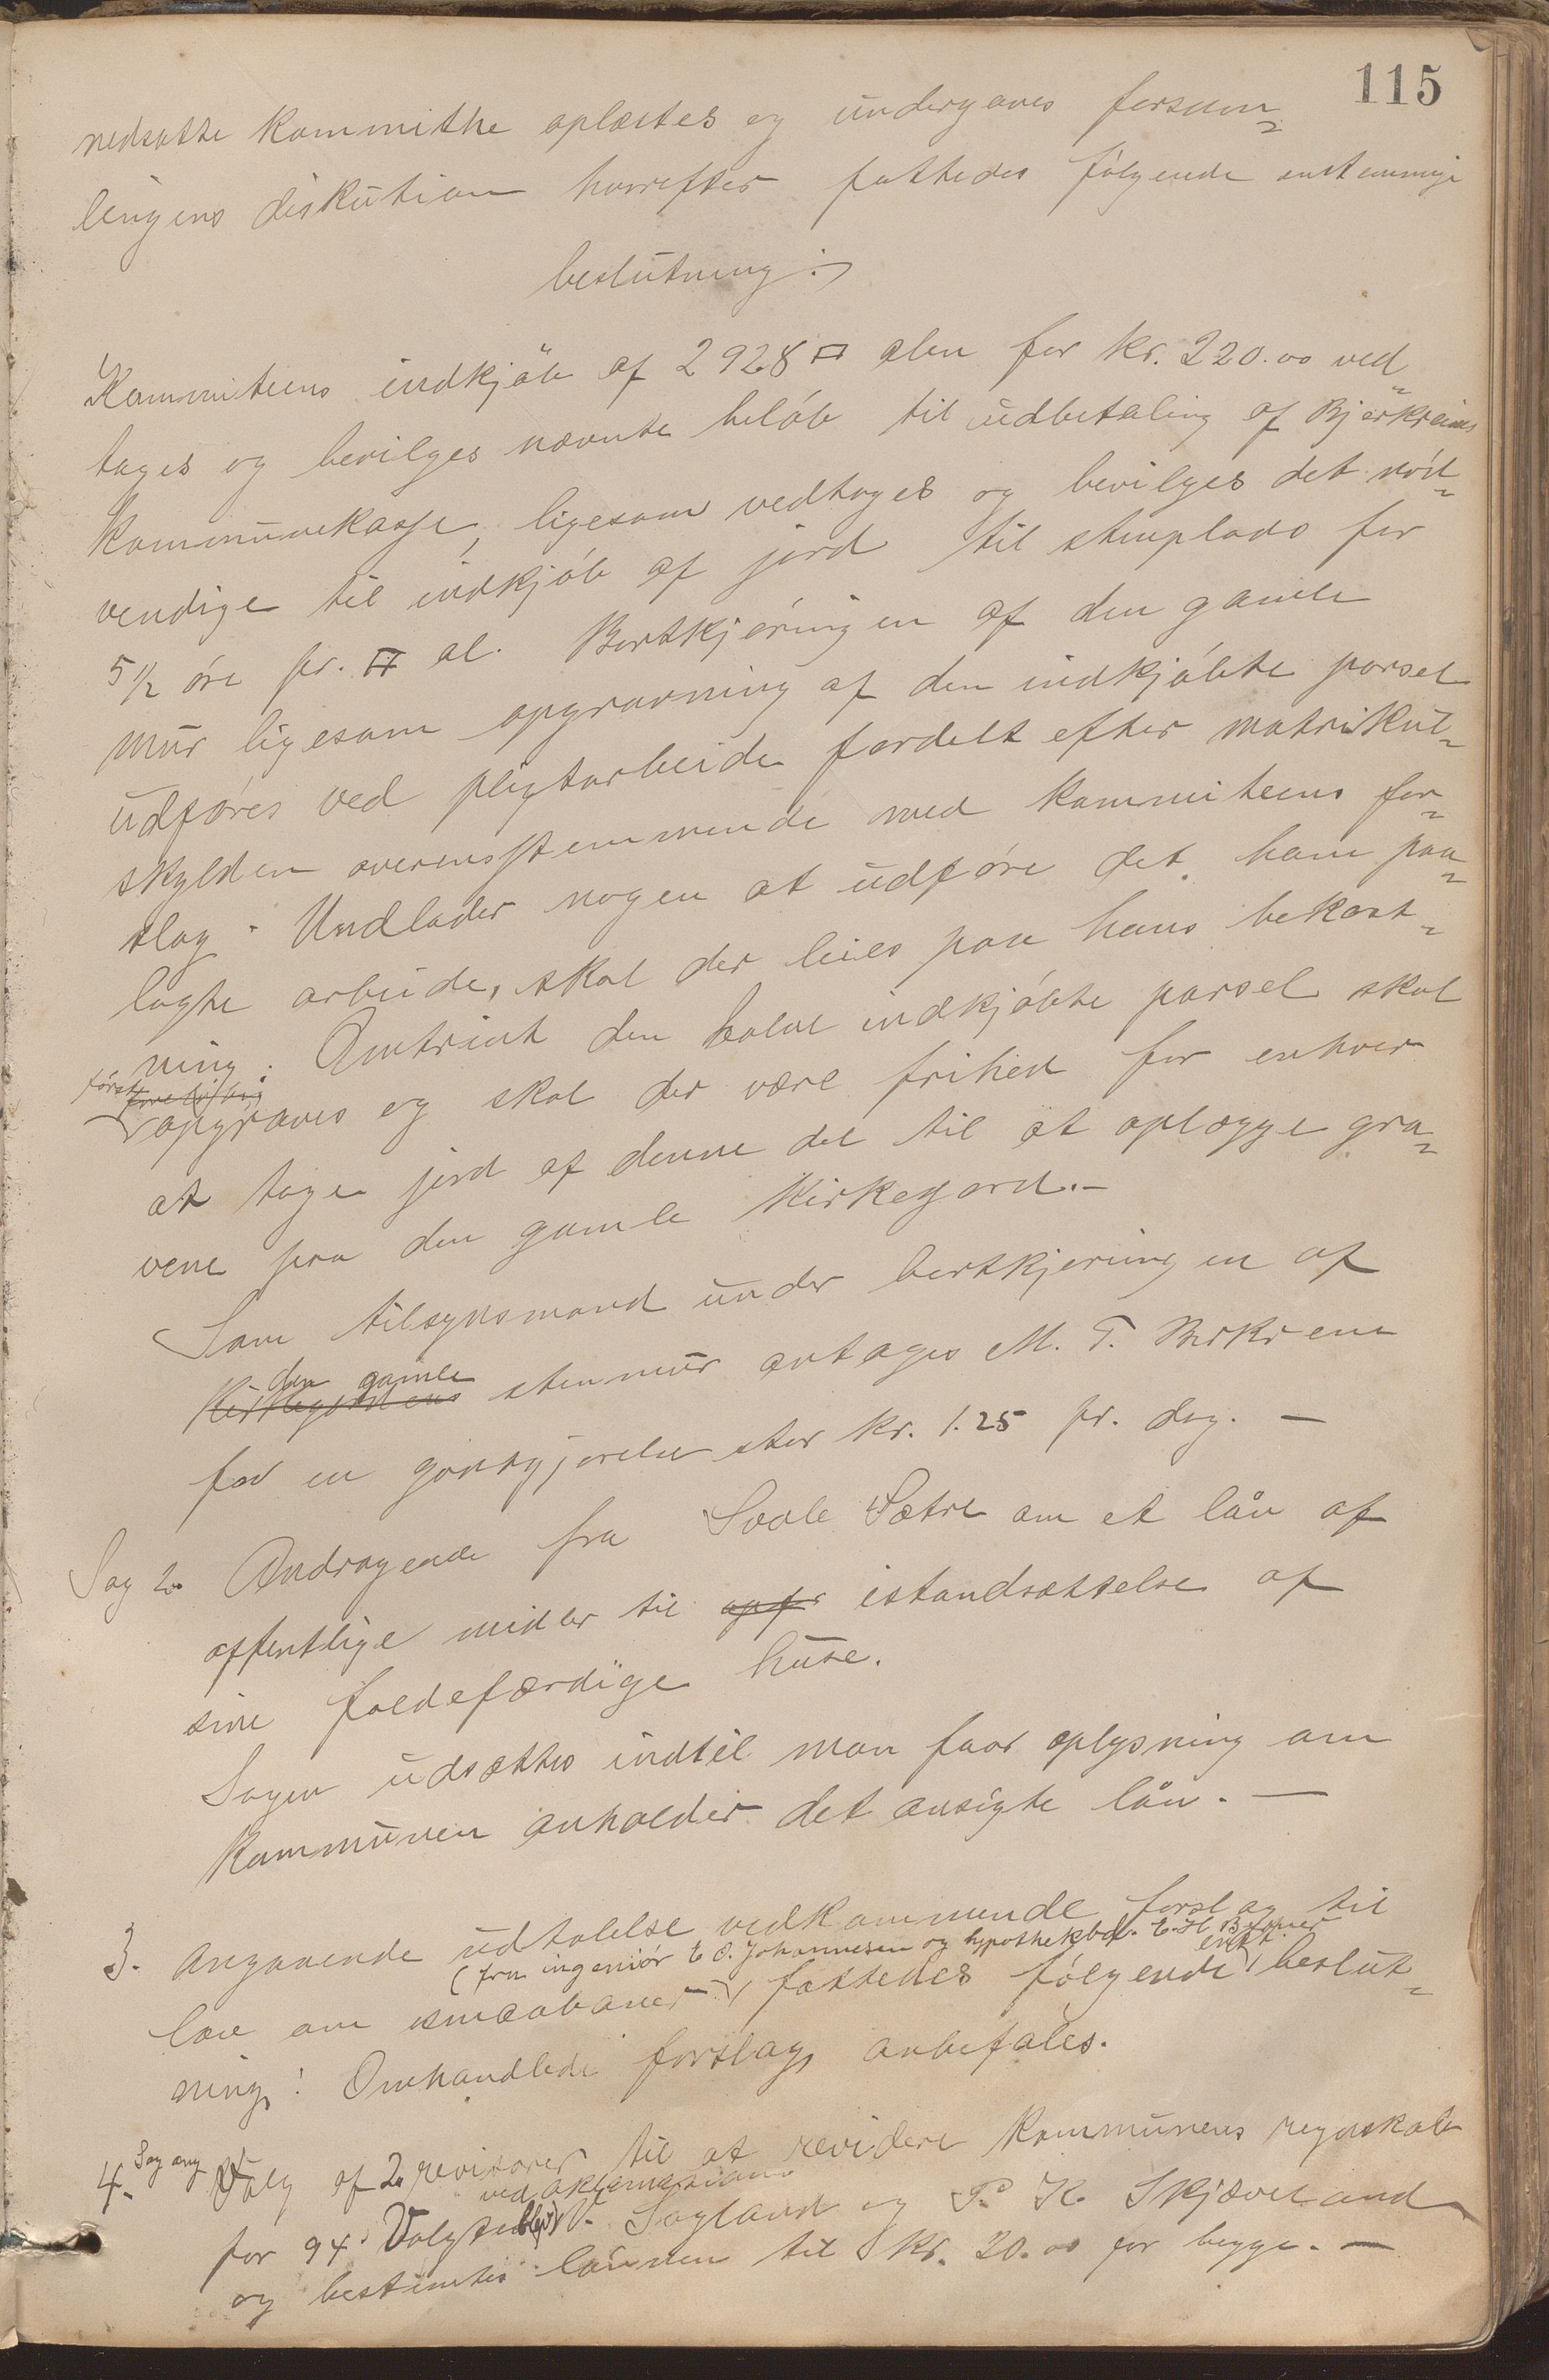 115
nedsatte Kommithe oplæstes og undergaves forsam-
lingens diskution hvorefter fattedes følgende enstemmige
beslutning:
Kommiteens indkjøb af 2928 □ alen for kr. 220.00 ved-
tages og bevilges nævnte beløb til udbetaling af Bjerkreims
Kommunekasse, ligesom vedtages og bevilges det nød-
vendige til indkjøb af jord til stenplads for
5 1/2 øre pr. □ al. Bortkjøringen af den gamle
mur ligesom opgravning af den indkjøbte parsel
udføres ved pligtarbeide fordelt efter matrikul-
skylden overensstemmende med kommiteens for-
slag. Undlader nogen at udføre det ham paa-
lagte arbeide, skal der leies paa hans bekost-
ning. Omtrent den halve indkjøbte parsel skal
først foreløbig
opgraves og skal der være frihed for enhver
at tage jord af denne del til at oplægge gra-
vene paa den gamle Kirkegard.-
Som tilsynsmand under bortkjøringen af
den gamle
Kirkegardens stenmur antages M. T. Birkrem
for en godtgjørelse stor kr. 1.25 pr. dag. —
Sag 2. Andragende fra Soale Sætre om et lån af
offentlige midler til istandsættelse af
sine faldefærdige huse.
Sagen udsættes indtil man faar oplysning om
Kommunen anholder det ansøgte lån. —
3. Angaaende udtalelse vedkommende forslag til
(fra ingeniør E S. Johannesen og hypothekbd. E. H. Befaner
enst.
lov om smaabaner fattedes følgende beslut-
ning: Omhandlede forslag anbefales.
4. Sag ang Valg af 2 revisorer til at revidere Kommunens regnskab
ved aklamasion
for 94. Valgte blev V. Sagland og P. K. Skjæveland
og bestemtes lønnen til kr. 20.00 for begge. —